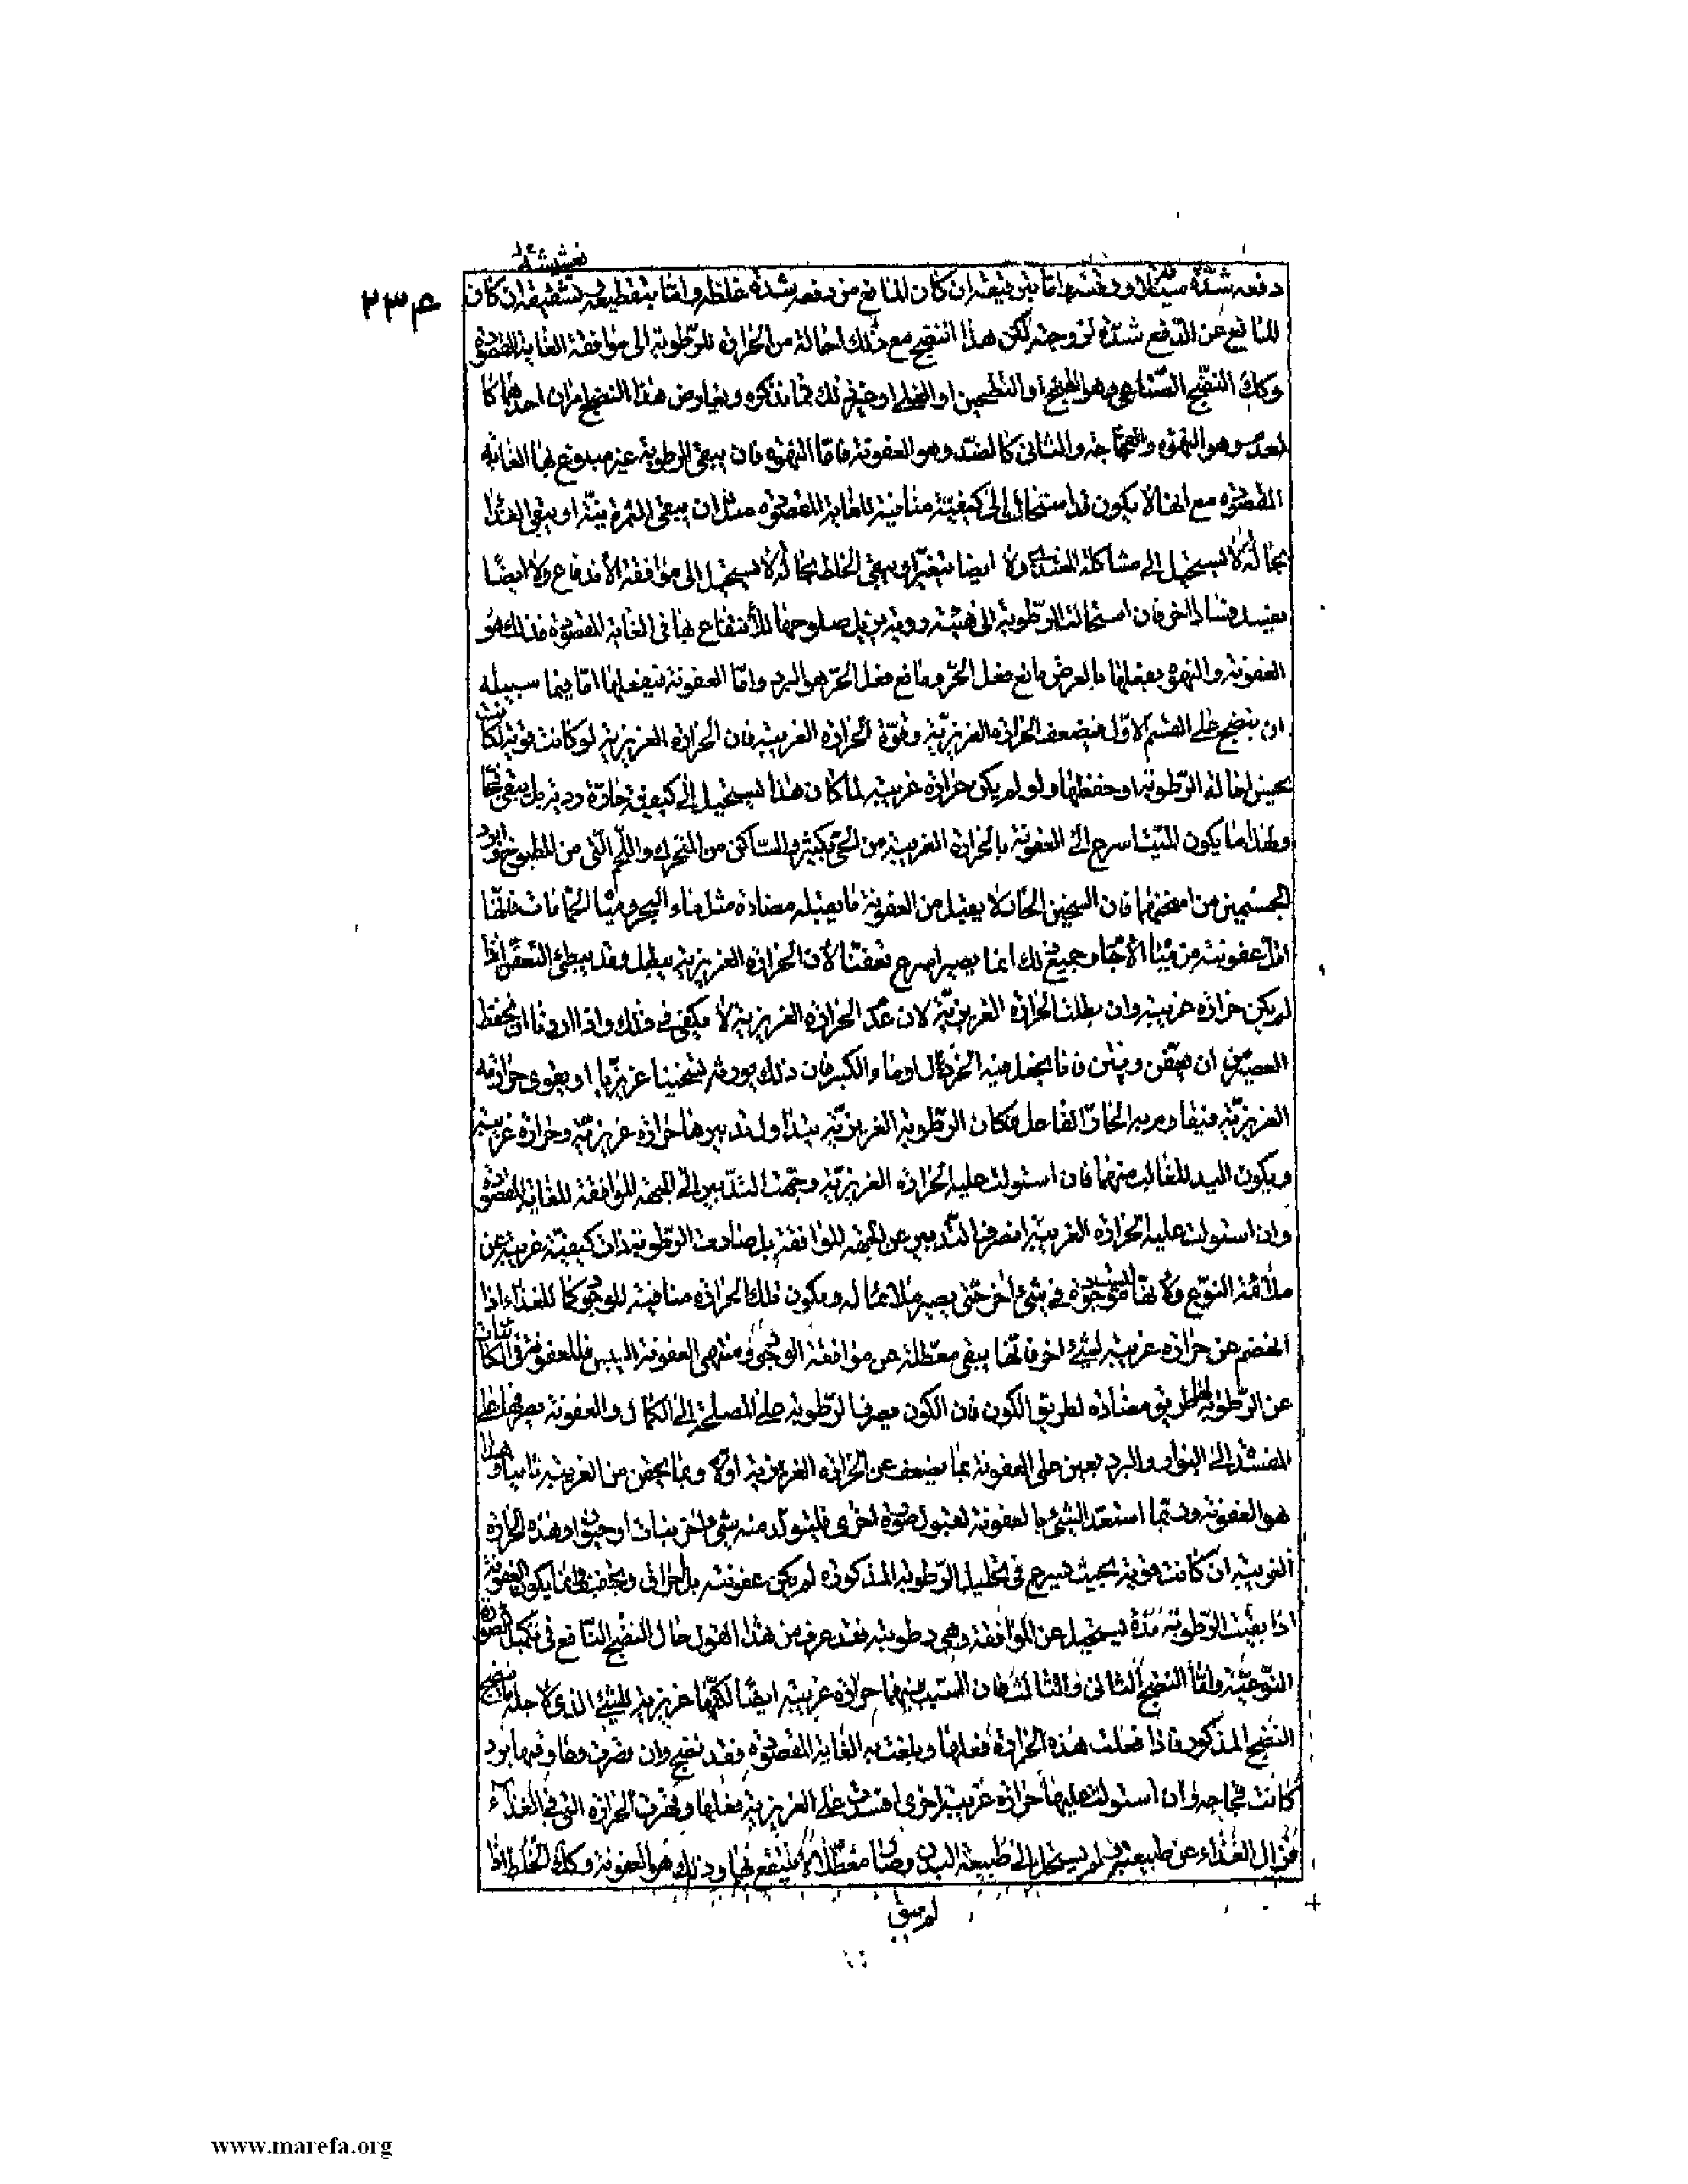 دفعه شدة سيلان ورقته واما بترقيقه ان كان المانع من دفعه شدة غلظه واما بتقطيعه وتشقيقه ان كان
ص ٢٣٣
للمانع عن الدفع شدة لزوجته لكن هذا النضج مع ذلك احالة من الحرارة للرطوبة الى موافقة الغاية المقصودة
وكك النضج الصناعى وهو الطبخ او التطجين او القلى او غير ذلك مما نذكره ويعارض هذا النضج امران احدهما كا
لعدم وهو النهوة والفجاجة والثانى كالضد وهو العفونة فاما النهوة فان يبقى الرطوبة غير مبلوغ بها الغاية
المقصودة مع انها لا يكون قد استحالت الى كيفية منافية للغاية المقصودة مثل ان يبقى الثمرة نية او يبقى الغذا
بحالة لا تستحيل الى مشاكلة المغتذى ولا ايضا يتغير او يبقى الخلط بحالة لا يستحيل الى موافقة الاندفاع ولا ايضا
يفسد فسادا اخر فان استحالت الرطوبة الى هيئة ردية يزيل صلوحها للانتفاع بها فى الغاية المقصودة فذلك هو
العفونة والنهوة يفعلها بالعرض مانع فعل الحر ومانع فعل الحر هو البرد واما العفونة فيفعلها اما فيما سبيله
ان ينضج على القسم الاول فضعف الحرارة الغريزية وقوة الحرارة الغريبة فان الحرارة الغريزية لو كانت قوية لكانت
تحسن احالة الرطوبة او حفظها ولو لم يكن حرارة غريبة لما كان هذا تستحيل الى كيفية حارة ردية بل يبقى فجا
ولهذا ما يكون الميت اسرع الى العفونة بالحرارة الغريبة من الحى بكثير والساكن من المتحرك واللحم النى من المطبوخ وابرد
الجسمين من اسخنهما فان السخين الحار لا يقبل من العفونة ما يقبله مضاده مثل ماء البحر ومياه الحمامات فانها
اقل عفونة من مياه الآجام وجميع ذلك انما يصير اسرع تعفنا لان الحرارة الغريزية يبطل وقد يبطئ التعفن اذا
لم يكن حرارة غريبة وان بطلت الحرارة الغريزية لان عدم الحرارة الغريزية لا يكفى فى ذلك واذا اردنا ان نحفظ
العصير من ان يعفن وينتن فانا نجعل فيه الخردل او ماء الكبر فان ذلك يورثه تسخينا غريزيا او يقوى حرارته
الغريزية فيقاوم به الحار الفاعل فكان الرطوبة الغريزية يتداول تدبيرها حرارة غريزية وحرارة غريبة
ويكون اليد للغالب منهما فان استولت عليه الحرارة الغريزية وجهت التدبير الى الجهة الموافقة للغاية المقصودة
وان استولت عليه الحرارة الغريبة انصرف التدبير عن الجهة الموافقة بل صارت الرطوبة ذات كيفية غريبة عن
ملائمة النوع ولانها موجودة فى شئ اخر حتى يصير ملائما له ويكون تلك الحرارة منافية للوجود كما للغذاء اذا
انهضم عن حرارة غريبة لشئ اخر فانها يبقى معطلة عن موافقة الوجود ومنتهى العفونة اليبس فللعفونة فى الكائنات
عن الرطوبة طريق مضادة لطريق الكون فان الكون يصرف الرطوبة على المصلحة الى الكمال والعفونة يصرفها على
المفسدة الى البوار والبرد يعين على العفونة بما يضعف عن الحرارة الغريزية اولا وبما يحقن من الغريبة ثانيا وهذا
هو العفونة وربما استعد الشئ بالعفونة لقبول صورة اخرى فليتولد منه شئ اخر نبات او حيوان وهذه الحرارة
الغريبة ان كانت قوية بحيث تسرع فى تحليل الرطوبة المذكورة لم يكن عفونة بل احراق وتجفيف وانما يكون العفونة
اذا بقيت الرطوبة مدة تستحيل عن الموافقة وهى رطوبة فقد عرف من هذا القول حال النضج النافع فى تكميل الصورة
النوعية واما النضج الثانى والثالث فان السبب فيهما حرارة غريبة ايضا لكنها غريزية للشئ الذى لاجله ما ينضج
النضج المذكور فاذا فعلت هذه الحرارة فعلها وبلغت به الغاية المقصودة فقد نضج وان قصرت وقاومها برد
كانت فجاجة وان استولت عليها حرارة غريبة اخرى افسدت على الغريزية فعلها وتعرف الحرارة التى فى الغذاء
فزال الغذاء عن طبيعته ولم يستحل الى طبيعة البدن وصار معطلا لا ينتفع بها وذلك هو العفونة وكك الخلط اذا
لم يبق
www.marefa.org